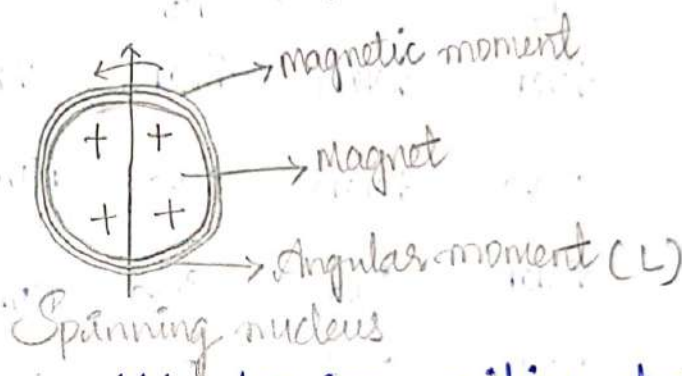 magnetic moment
+ +
Magnet
+ +
Angular moment (L)
Spinning nucleus